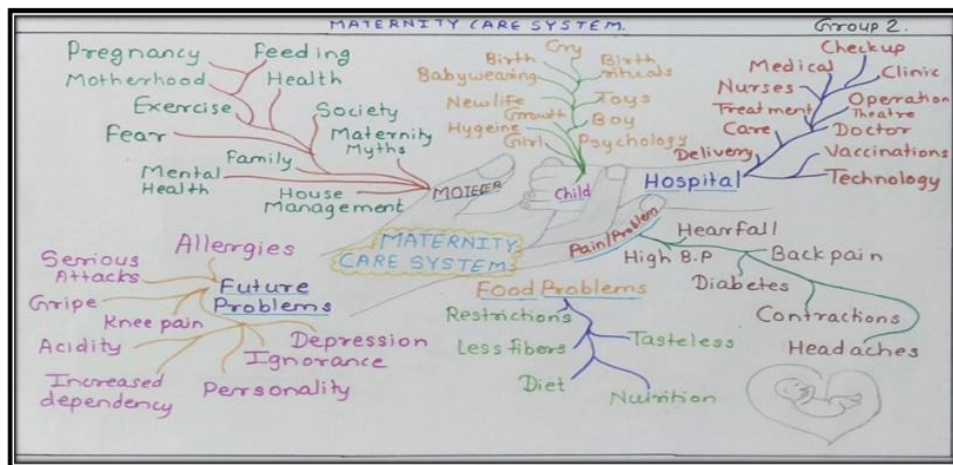 MATERNITY CARE SYSTEM.
Group 2.
Pregnancy
Feeding
Motherhood
Health
Exercise
Society
Fear
Maternity
Myths
Family
Mental
Health
House
Management
MOTHER
Cry
Birth
Birth
rituals
Babywearing
Newlife
Toys
Growth
Boy
Hygeine
Girl
Psychology
Child
Checkup
Medical
Clinic
Nurses
Operation
Theatre
Treatment
Care
Doctor
Delivery
Vaccinations
Hospital
Technology
MATERNITY
CARE SYSTEM
Pain/Problem
Hearfall
High B.P
Back pain
Diabetes
Contractions
Headaches
Allergies
Serious
Attacks
Future
Problems
Gripe
Knee pain
Depression
Acidity
Ignorance
Increased
dependency
Personality
Food Problems
Restrictions
Less fibers
Tasteless
Diet
Nutrition